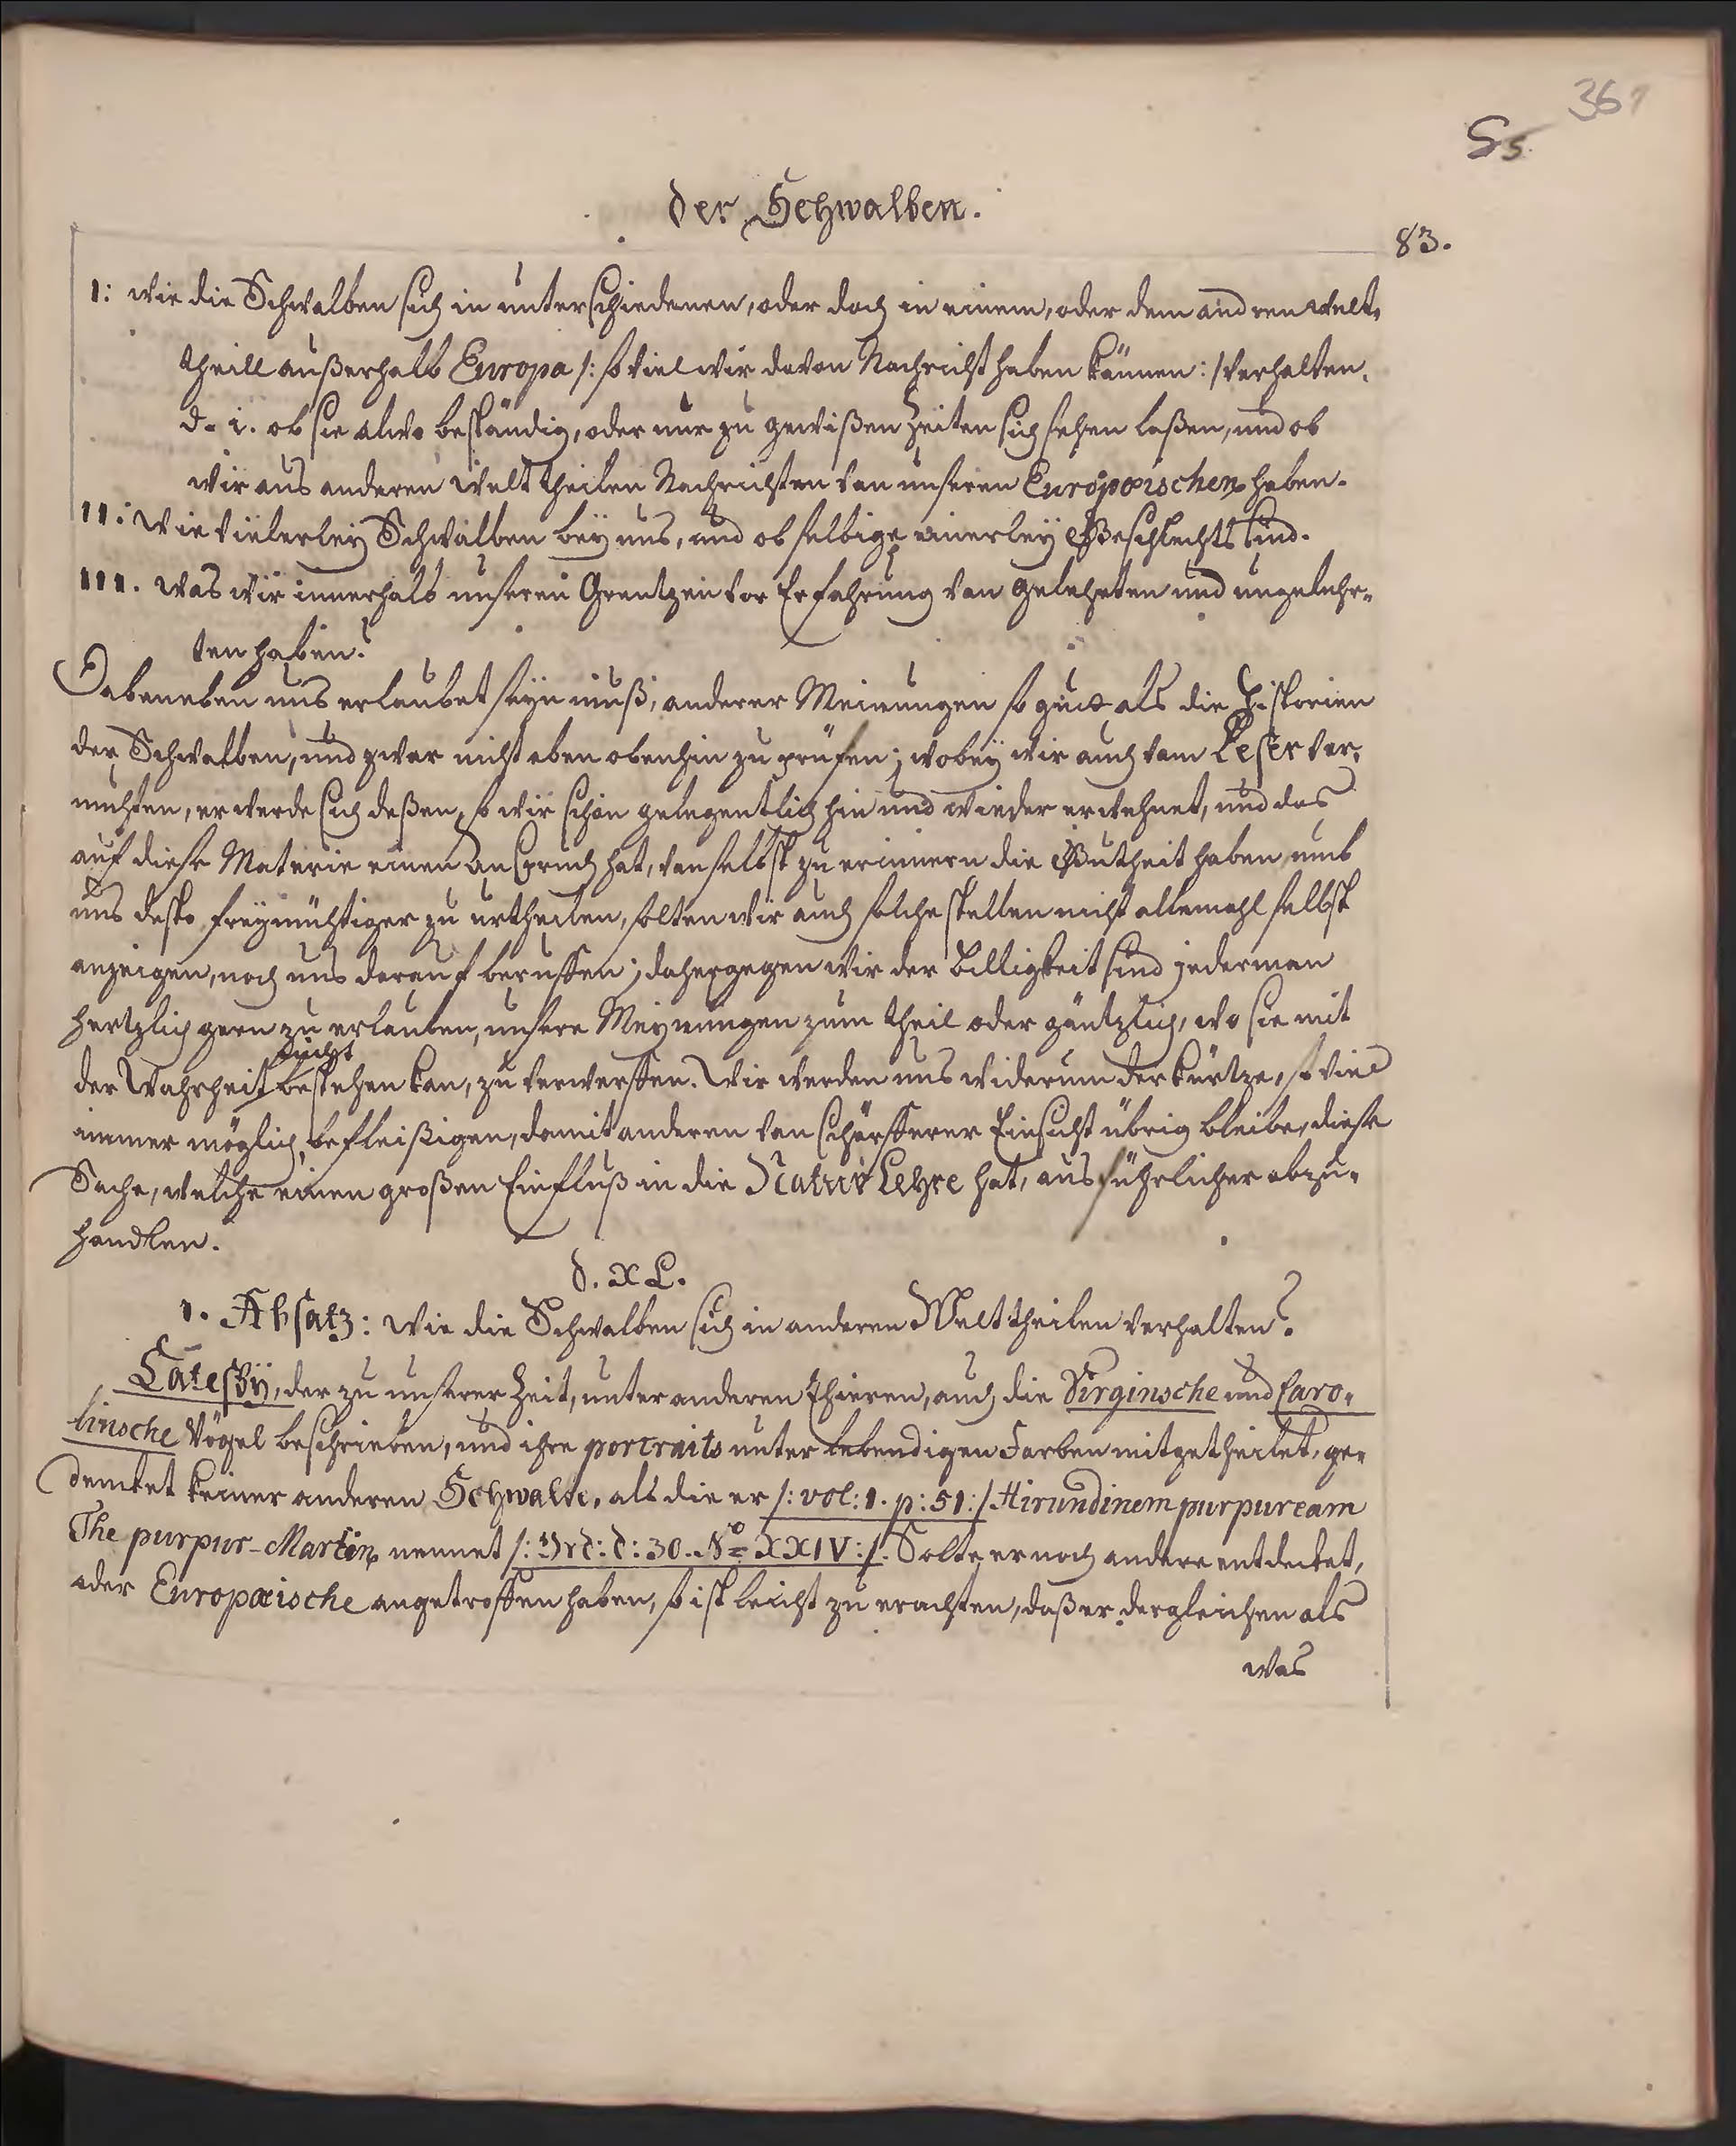 367
S5
der Schwalben.
83.
I: wie die Schwalben sich in unterschiedenen, oder doch in einem, oder dem andren welt,
theill außerhalb Europa /: so viel wir davon Nachricht haben können :/ verhalten.
d. i. ob sie alwo beständig, oder nur zu gewißen Zeiten sich sehen laßen, und ob
wir aus anderen Welt theilen Nachrichten von unseren Europæischen haben.
II: Wie vielerley Schwalben bey uns, und ob selbige einerley Geschlechts sind.
III. was wir innerhalb unseren Grentzen vor Erfahrung von gelehrten und ungelehr-
ten haben?
Dabeneben uns erlaubet seyn muß, anderer Meinungen so gut als die Historien
der Schwalben, und zwar nicht eben obenhin zu prüfen; wobey wir auch vom Leser ver-
muhten, er werde sich deßen, so wir schon gelegentlich hin und wieder erwehnet, und das
auf diese Materie einen Anspruch hat, von selbst zu erinnern die Gutheit haben, umb
uns desto freymühtiger zu urtheilen, solten wir auch solche stellen nicht allemahl selbst
anzeigen, noch uns darauf beruffen; dahergegen wir der Billigkeit sind jederman
hertzlich gern zu erlauben, unsere Meynungen zum theil oder gäntzlich, wo sie mit
nicht
der Wahrheit bestehen kan, zu verwerffen. Wir werden uns widerum der Kürtze, so viel
immer möglich, befleißigen, damit anderen von schärfferer Einsicht übrig bleibe, diese
Sache, welche einen großen Einfluß in die Natur Lehre hat, ausführlicher abzu-
handlen.
§. XL.
1. Absatz: Wie die Schwalben sich in anderen Welt theilen verhalten?
Catesbÿ, der zu unserer Zeit, unter anderen Thieren, auch die Virginsche und Caro-
linsche Vögel beschrieben, und ihre portraits unter lebendigen Farben mitgetheilet, ge-
dencket keiner anderen Schwalbe, als die er /: vol: 1. p: 51 :/ Hirundinem purpuream
The purpur-Martin nennet /: §: 30. No= XXIV :/. Solte er noch andere entdecket,
oder Europæische angetroffen haben, so ist leicht zu erachten, daß er dergleichen als
was